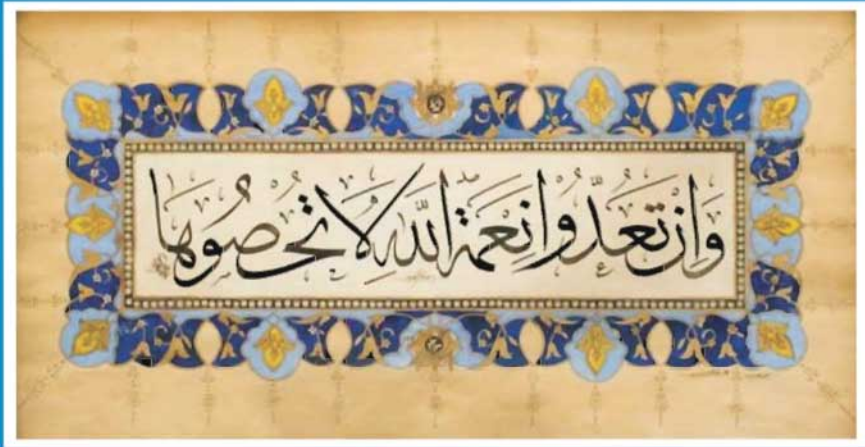 وَاِنْ تَعُدُّوا نِعْمَةَ اللَّهِ لَا تُحْصُوهَا